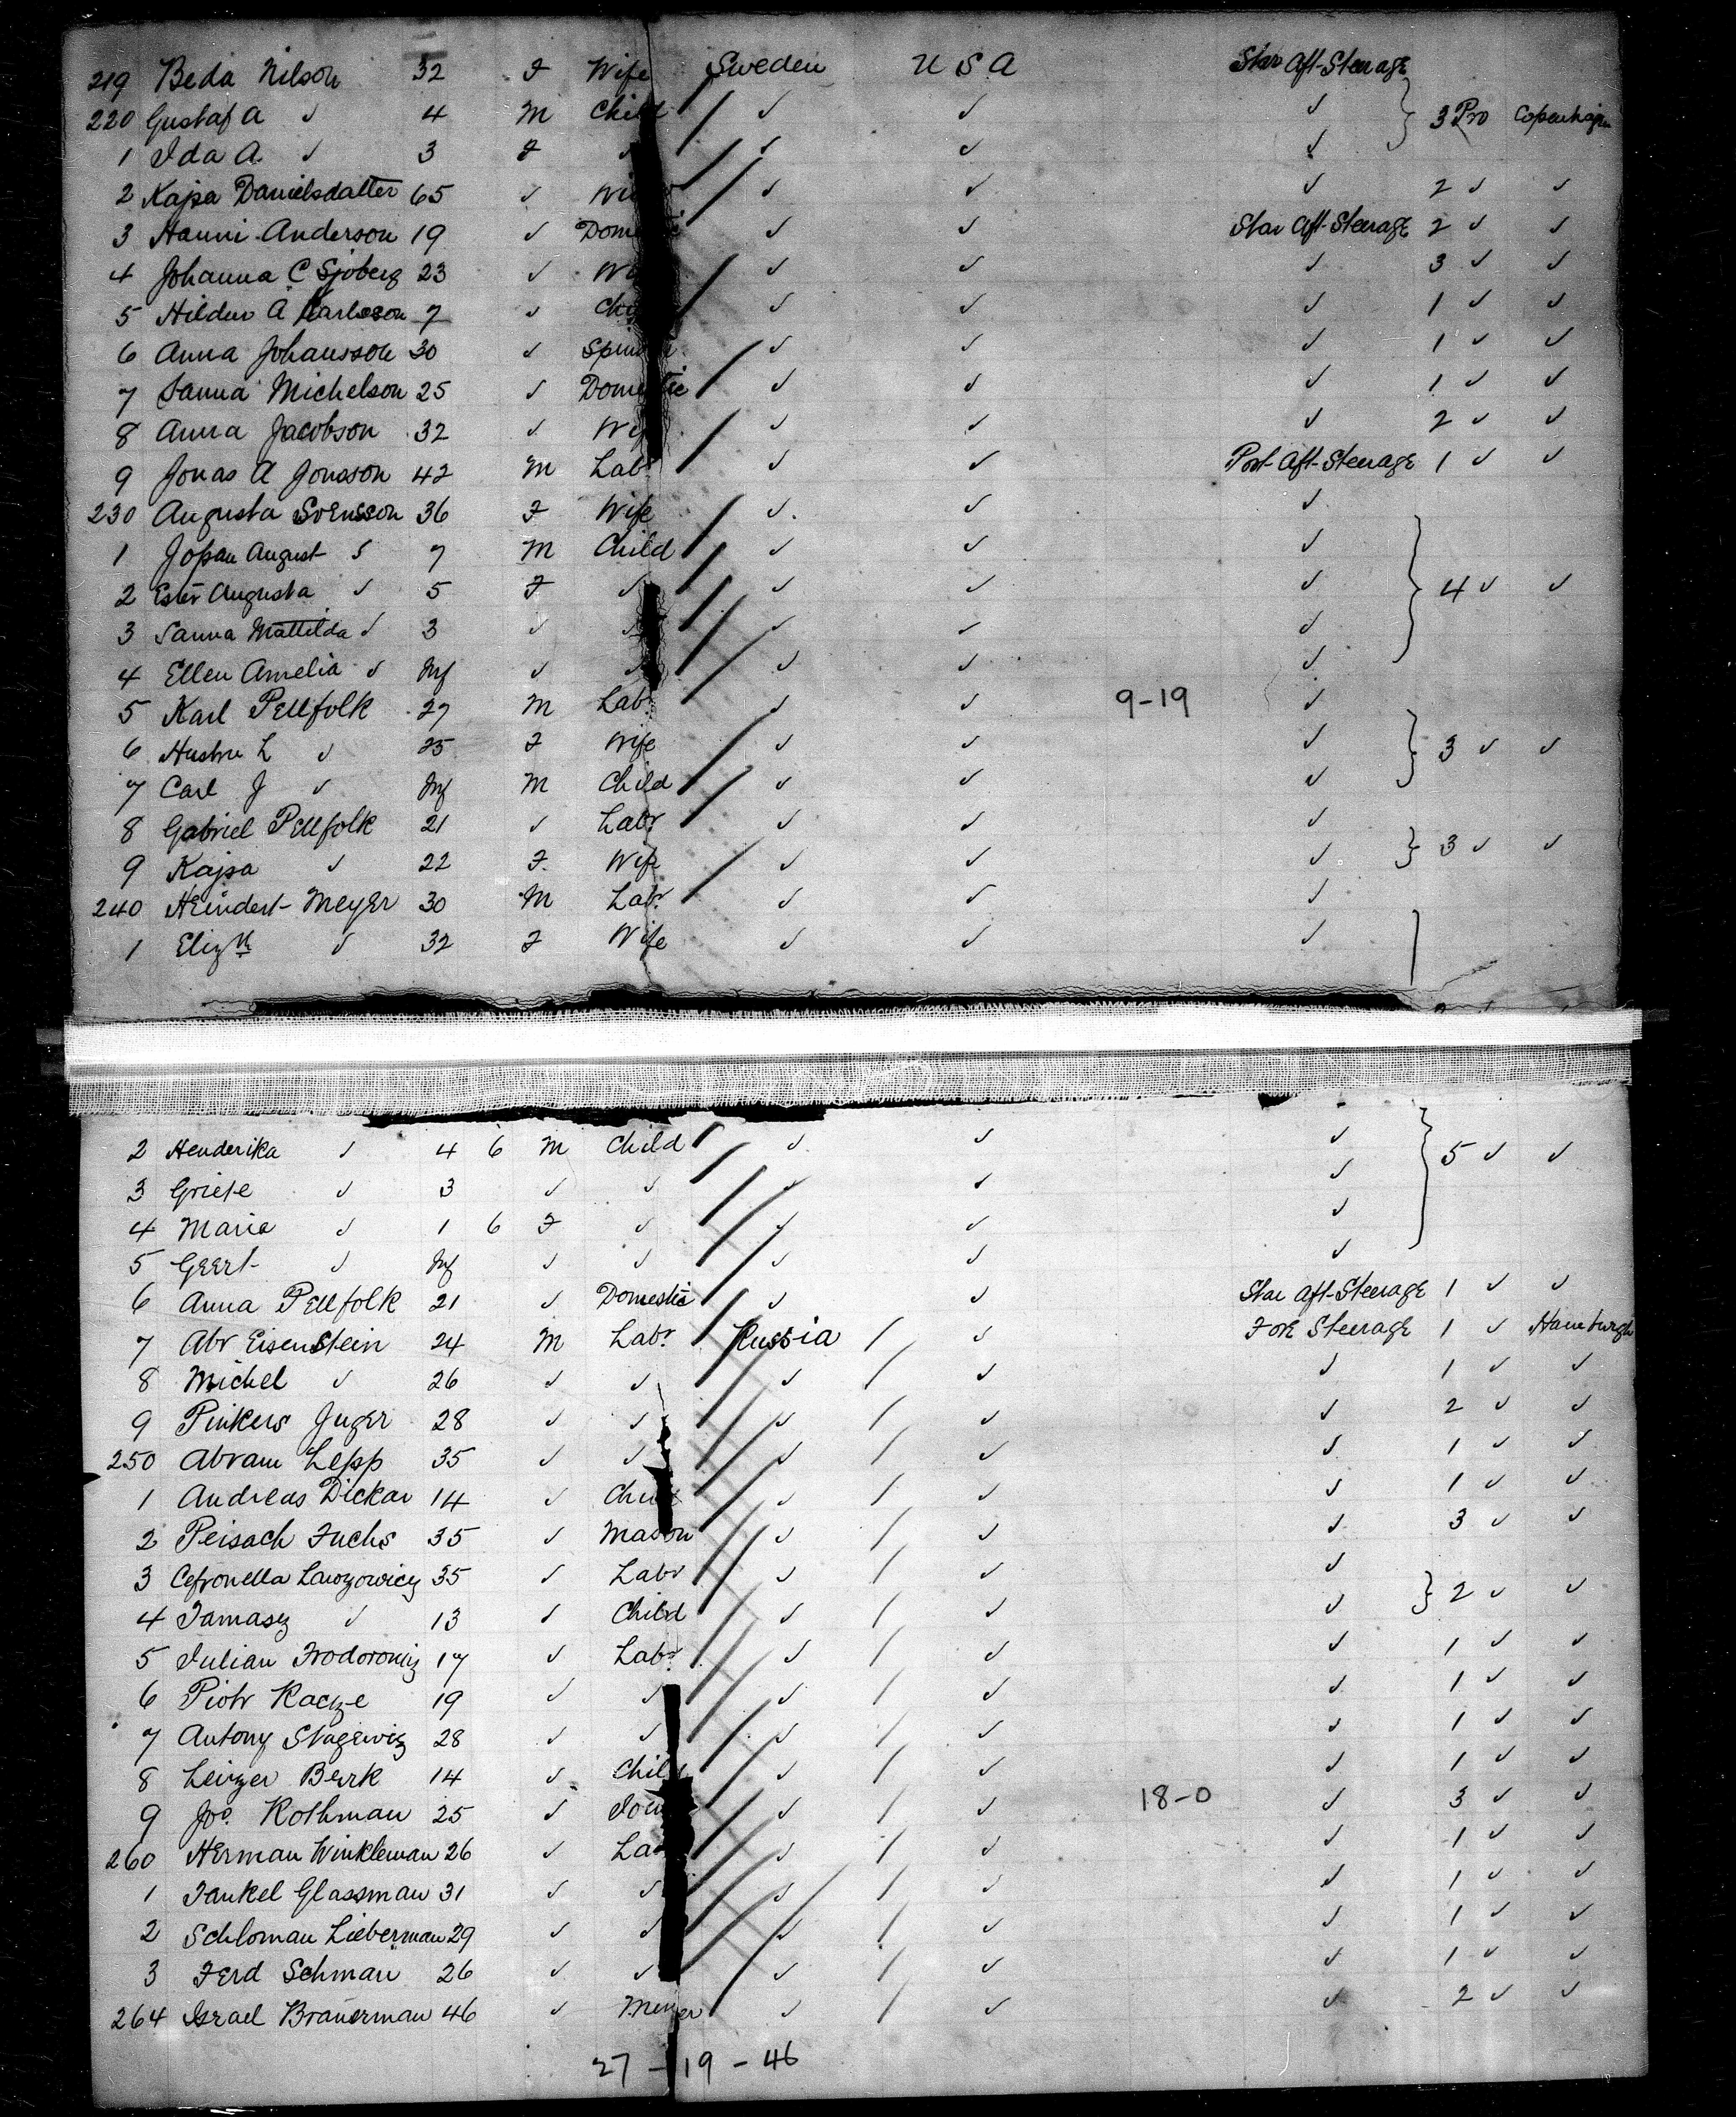 219 Beda Nilson 32 F Wife Sweden U S A Star Aft-Steerage
220 Gustaf A ✓ 4 M Child ✓ ✓ ✓ 3 Pro Copenhagen
1 Ida A. ✓ 3 F ✓ ✓ ✓ ✓
2 Kajsa Danielsdatter 65 ✓ ✓ ✓ ✓ 2 ✓ ✓
3 Hanni Anderson 19 ✓ Domestic ✓ ✓ Star Aft-Steerage 2 ✓ ✓
4 Johanna C Sjoberg 23 ✓ ✓ ✓ ✓ 3 ✓ ✓
5 Hildur A Karlsson 7 ✓ ✓ ✓ ✓ 1 ✓ ✓
6 Anna Johansson 30 ✓ ✓ ✓ ✓ 1 ✓ ✓
7 Sanna Michelson 25 ✓ Domestic ✓ ✓ ✓ 1 ✓ ✓
8 Anna Jacobson 32 ✓ ✓ ✓ ✓ 2 ✓ ✓
9 Jonas A Jonsson 42 M Labr ✓ ✓ Port Aft-Steerage 1 ✓ ✓
230 Augusta Svensson 36 F Wife ✓ ✓ ✓
1 Johan August ✓ 7 M Child ✓ ✓ ✓
2 Ester Augusta ✓ 5 F ✓ ✓ ✓ ✓ 4 ✓ ✓
3 Sanna Mattilda ✓ 3 ✓ ✓ ✓ ✓ ✓
4 Ellen Amelia ✓ Inf ✓ ✓ ✓ ✓ ✓
5 Karl Pellfolk 27 M Labr ✓ ✓ 9-19 ✓
6 Hustru L ✓ 25 F Wife ✓ ✓ ✓ 3 ✓ ✓
7 Carl J ✓ Inf M Child ✓ ✓ ✓
8 Gabriel Pellfolk 21 ✓ Labr ✓ ✓ ✓
9 Kajsa ✓ 22 F. Wife ✓ ✓ ✓ 3 ✓ ✓
240 Heindert Meyer 30 M Labr ✓ ✓ ✓
1 Elizth ✓ 32 F Wife ✓ ✓ ✓
2 Henderika ✓ 4 6 M Child ✓ ✓ ✓ 5 ✓ ✓
3 Griete ✓ 3 ✓ ✓ ✓ ✓ ✓
4 Maria ✓ 1 6 F ✓ ✓ ✓ ✓
5 Geert ✓ Inf ✓ ✓ ✓ ✓ ✓
6 Anna Pellfolk 21 ✓ Domestic ✓ ✓ Star Aft-Steerage 1 ✓ ✓
7 Abr Eisenstein 24 M Labr Russia / ✓ Fore Steerage 1 ✓ Hamburgh
8 Michel ✓ 26 ✓ ✓ ✓ / ✓ ✓ 1 ✓ ✓
9 Pinkus Juger 28 ✓ ✓ ✓ / ✓ ✓ 2 ✓ ✓
250 Abram Lepp 35 ✓ ✓ ✓ / ✓ ✓ 1 ✓ ✓
1 Andreas Dickar 14 ✓ ✓ / ✓ ✓ 1 ✓ ✓
2 Peisach Fuchs 35 ✓ Mason ✓ / ✓ ✓ 3 ✓ ✓
3 35 ✓ Labr ✓ / ✓ ✓
4 Tamasz ✓ 13 ✓ Child ✓ / ✓ ✓ 2 ✓ ✓
5 Julian 17 ✓ Labr ✓ / ✓ ✓ 1 ✓ ✓
6 Piotr Kacze 19 ✓ ✓ ✓ / ✓ ✓ 1 ✓ ✓
7 Antony Stagewiz 28 ✓ ✓ ✓ / ✓ ✓ 1 ✓ ✓
8 Leizer Berk 14 ✓ Child ✓ / ✓ ✓ 1 ✓ ✓
9 Jos. Rothman 25 ✓ ✓ / ✓ 18-0 ✓ 3 ✓ ✓
260 Herman Winkleman 26 ✓ ✓ / ✓ ✓ 1 ✓ ✓
1 Jankel Glassman 31 ✓ ✓ ✓ / ✓ ✓ 1 ✓ ✓
2 Schloman Lieberman 29 ✓ ✓ ✓ / ✓ ✓ 1 ✓ ✓
3 Ferd Schman 26 ✓ ✓ ✓ / ✓ ✓ 1 ✓ ✓
264 Israel Brauerman 46 ✓ ✓ / ✓ ✓ 2 ✓ ✓
27 - 19 - 46